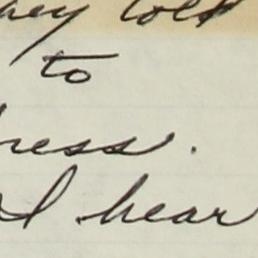 hey told
to
ress.
I hear